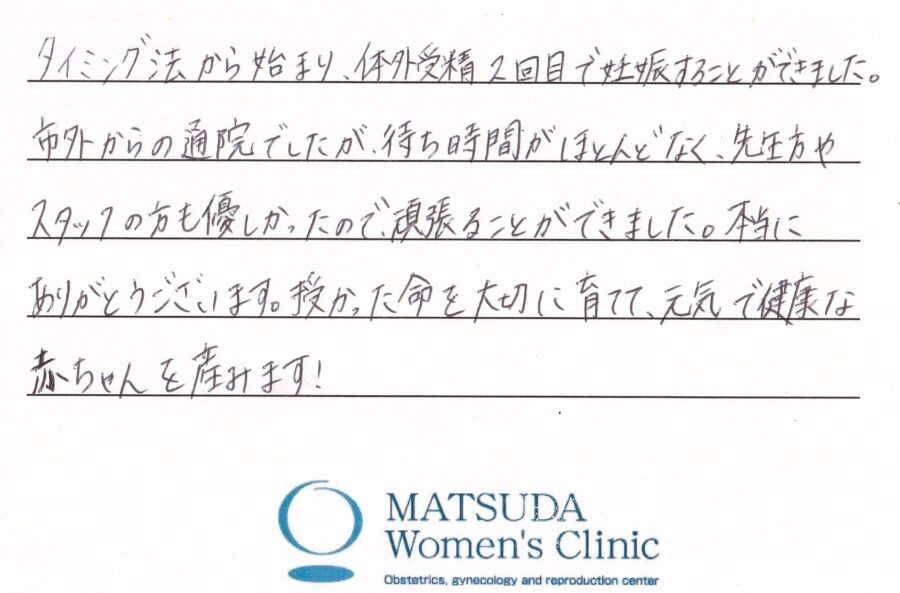 タイミング法から始まり、体外受精2回目で妊娠することができました。
市外からの通院でしたが、待ち時間がほとんどなく、先生方や
スタッフの方も優しかったので、頑張ることができました。本当に
ありがとうございます。授かった命を大切に育てて、元気で健康な
赤ちゃんを産みます!
MATSUDA
Women's Clinic
Obstetrics, gynecology and reproduction center